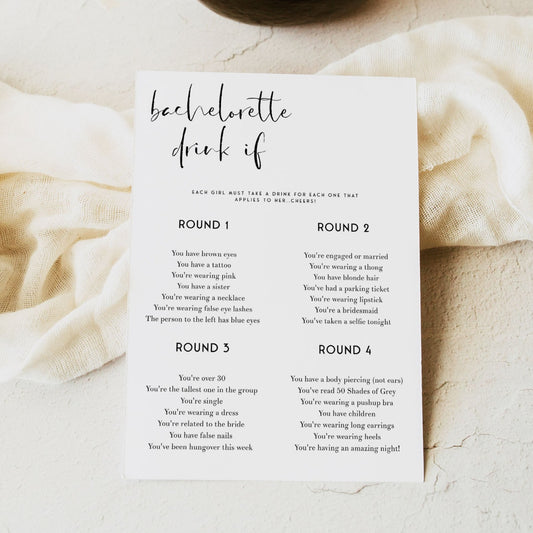 bachelorette
drink if
EACH GIRL MUST TAKE A DRINK FOR EACH ONE THAT
APPLIES TO HER..CHEERS!
ROUND 1
You have brown eyes
You have a tattoo
You're wearing pink
You have a sister
You're wearing a necklace
You're wearing false eye lashes
The person to the left has blue eyes
ROUND 2
You're engaged or married
You're wearing a thong
You have blonde hair
You've had a parking ticket
You're wearing lipstick
You're a bridesmaid
You've taken a selfie tonight
ROUND 3
You're over 30
You're the tallest one in the group
You're single
You're wearing a dress
You're related to the bride
You have false nails
You've been hungover this week
ROUND 4
You have a body piercing (not ears)
You've read 50 Shades of Grey
You're wearing a pushup bra
You have children
You're wearing long earrings
You're wearing heels
You're having an amazing night!